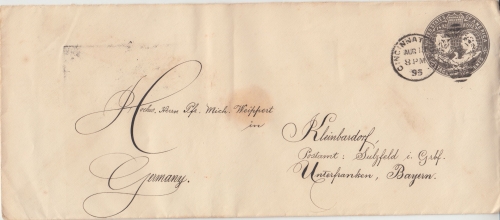 CINCINNATI
AUG
8 PM
95
Hochw. Herrn Pfr. Mich. Weippert
in
Kleinbardorf,
Postamt: Sulzfeld i. Grbf.
Unterfranken, Bayern.
Germany.